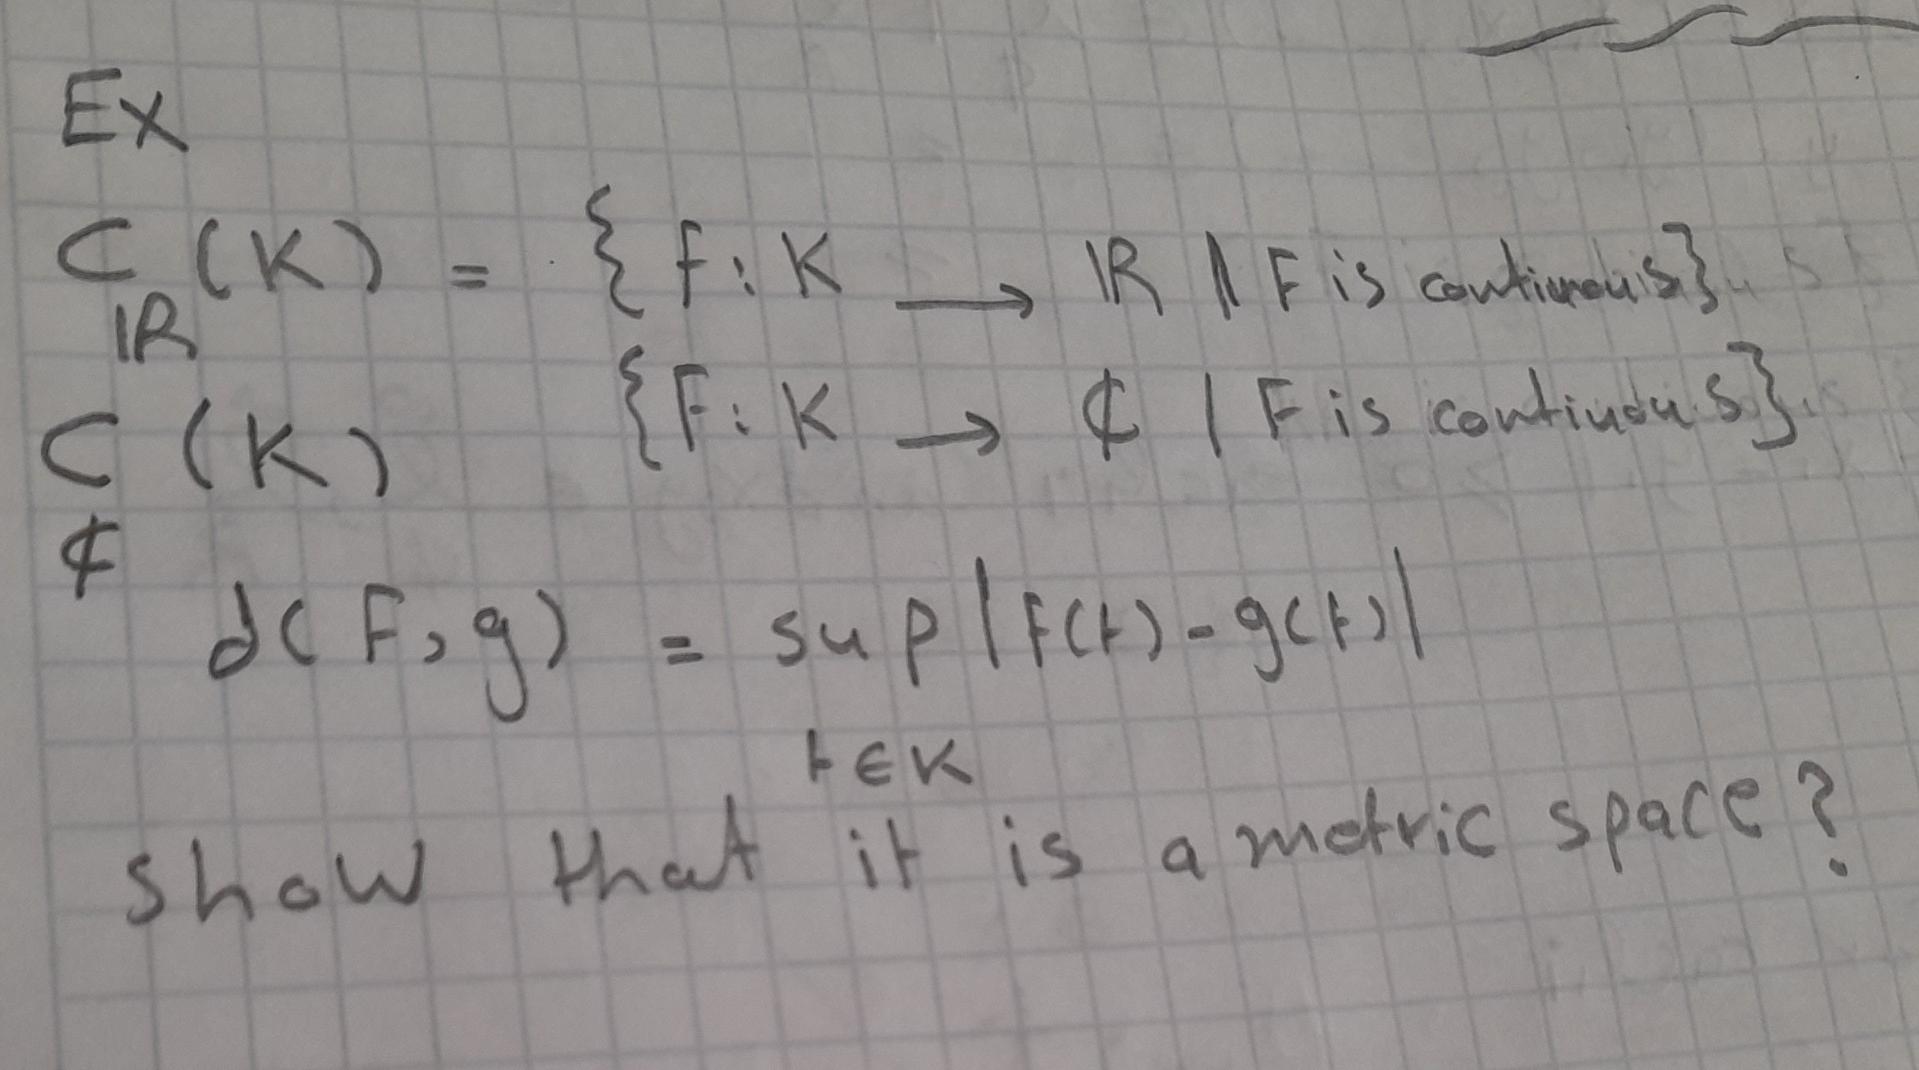 Ex
C (K) = { f : K → IR | F is continuous}
IR
C (K) {F : K → ₵ | F is continuous}
₵
d(F, g) = sup |F(t) - g(t)|
t ∈ K
show that it is a metric space?